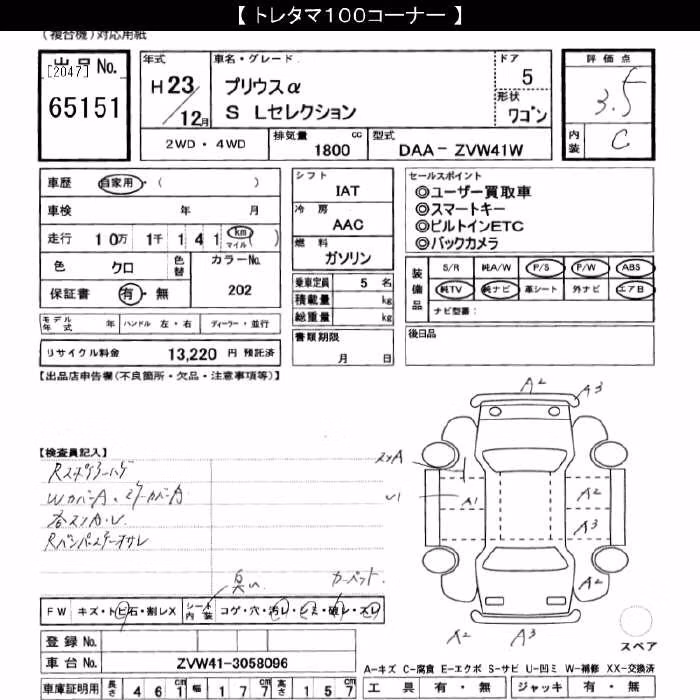 【 トレタマ100コーナー 】
(複合機)対応用紙
出品No.
[2047]
65151
年式
H23/12月
車名・グレード
プリウスα
S Lセレクション
ドア
5
形状
ワゴン
評価点
3.5
内装
C
2WD・4WD
排気量 1800 cc
型式 DAA- ZVW41W
車歴 自家用・( )
車検 年 月
走行 10万 1千 1 4 1 km マイル ( )
色 クロ
色替
カラーNo. 202
保証書 有・無
シフト IAT
冷房 AAC
燃料 ガソリン
乗車定員 5 名
積載量 kg
総重量 kg
書類期限
月 日
セールスポイント
◎ユーザー買取車
◎スマートキー
◎ビルトインETC
◎バックカメラ
装備品
S/R 純A/W P/S P/W ABS
純TV 純ナビ 革シート 外ナビ エアB
ナビ型番:
後日品
モデル年式 年 ハンドル 左・右 ディーラー・並行
リサイクル料金 13,220 円 預託済
【出品店申告欄(不良箇所・欠品・注意事項等)】
【検査員記入】
WカバーA
カーペット
FW キズ・トビ石・割レX
シート内装 コゲ・穴・汚レ・シミ・破レ・スレ
登録No.
車台No. ZVW41-3058096
車庫証明用 長さ 4 6 1 cm 幅 1 7 7 cm 高さ 1 5 7 cm
A2
A3
A1
U1
A2
A3
A2
A2
A3
スペア
A-キズ C-腐食 E-エクボ S-サビ U-凹ミ W-補修 XX-交換済
工具 有・無 ジャッキ 有・無